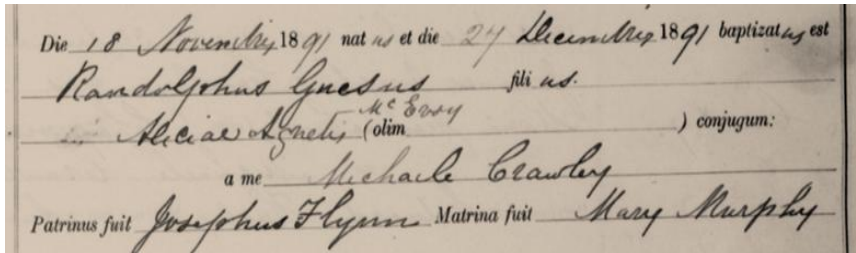 Die 18 Novembris 1891 natus et die 27 Decembris 1891 baptizatus est
Randolphus filius.
Mc Evoy
Aliciae Agnetis (olim ) conjugum:
a me Michaele Crawley
Patrinus fuit Josephus Flynn Matrina fuit Mary Murphy